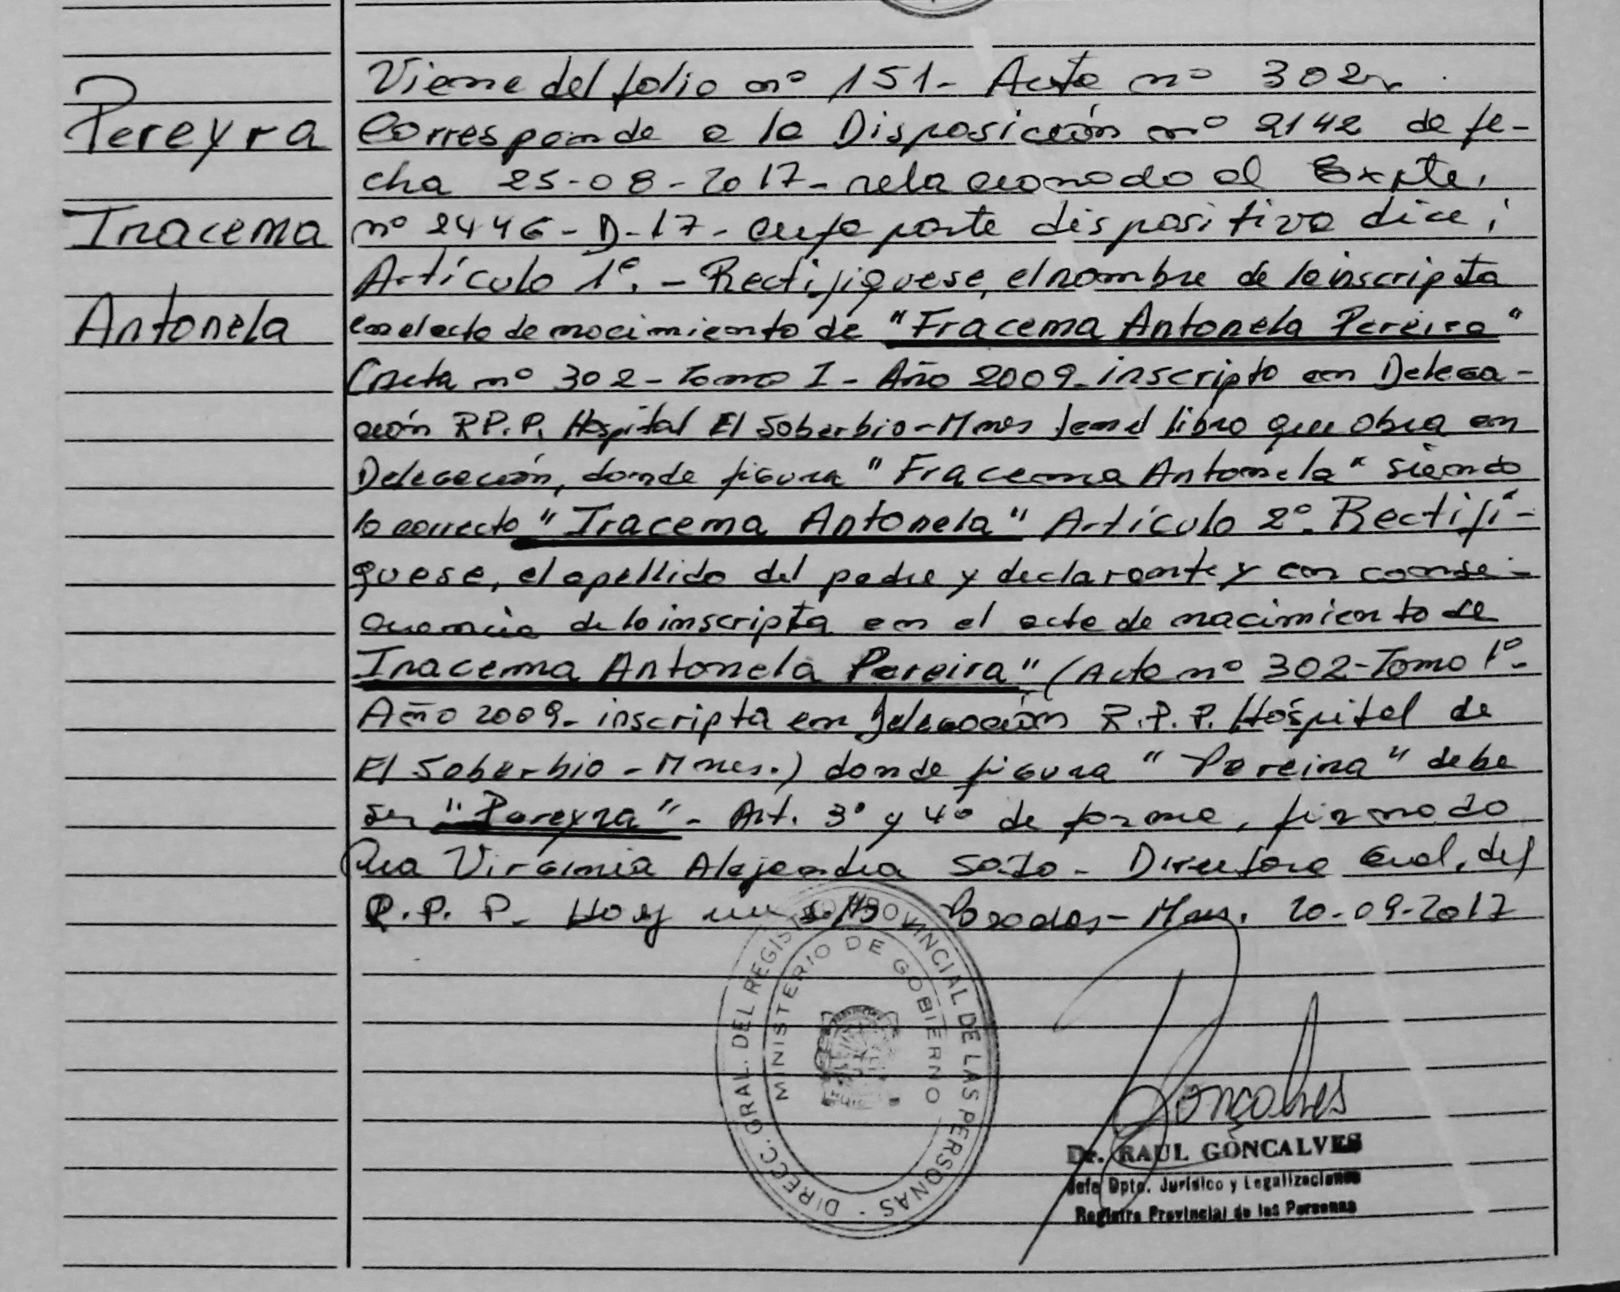 Pereyra
Iracema
Antonela
Viene del folio nº 151- Acta nº 302
Corresponde a la Disposición nº 2142 de fe-
cha 25-08-2017- relacionado al Expte.
nº 2446-D-17- cuya parte dispositiva dice:
Artículo 1º. - Rectifíquese, el nombre de la inscripta
en el acta de nacimiento de "Fracema Antonela Pereira"
(Acta nº 302- Tomo I- Año 2009- inscripta en Delega-
ción R.P.P. Hospital El Soberbio-Mnes) en el libro que obra en
Delegación, donde figura "Fracema Antonela" siendo
lo correcto "Iracema Antonela" Artículo 2º. Rectifí-
quese, el apellido del padre y declarante y en conse-
cuencia de la inscripta en el acta de nacimiento de
Iracema Antonela Pereira" (Acta nº 302-Tomo 1º-
Año 2009- inscripta en Delegación R.P.P. Hospital de
El Soberbio - Mnes.) donde figura "Pereira" debe
ser "Pereyra" - Art. 3º y 4º de forma, firmado
Dra Virginia Alejandra Soto - Directora Gral. del
R.P.P. Hay un sello Posadas- Mnes. 20-09-2017
DIRECC. GRAL. DEL REGISTRO PROVINCIAL DE LAS PERSONAS -
MINISTERIO DE GOBIERNO
Gonçalves
Dr. RAUL GONCALVES
Jefe Dpto. Jurísico y Legalizaciones
Registro Provincial de las Personas